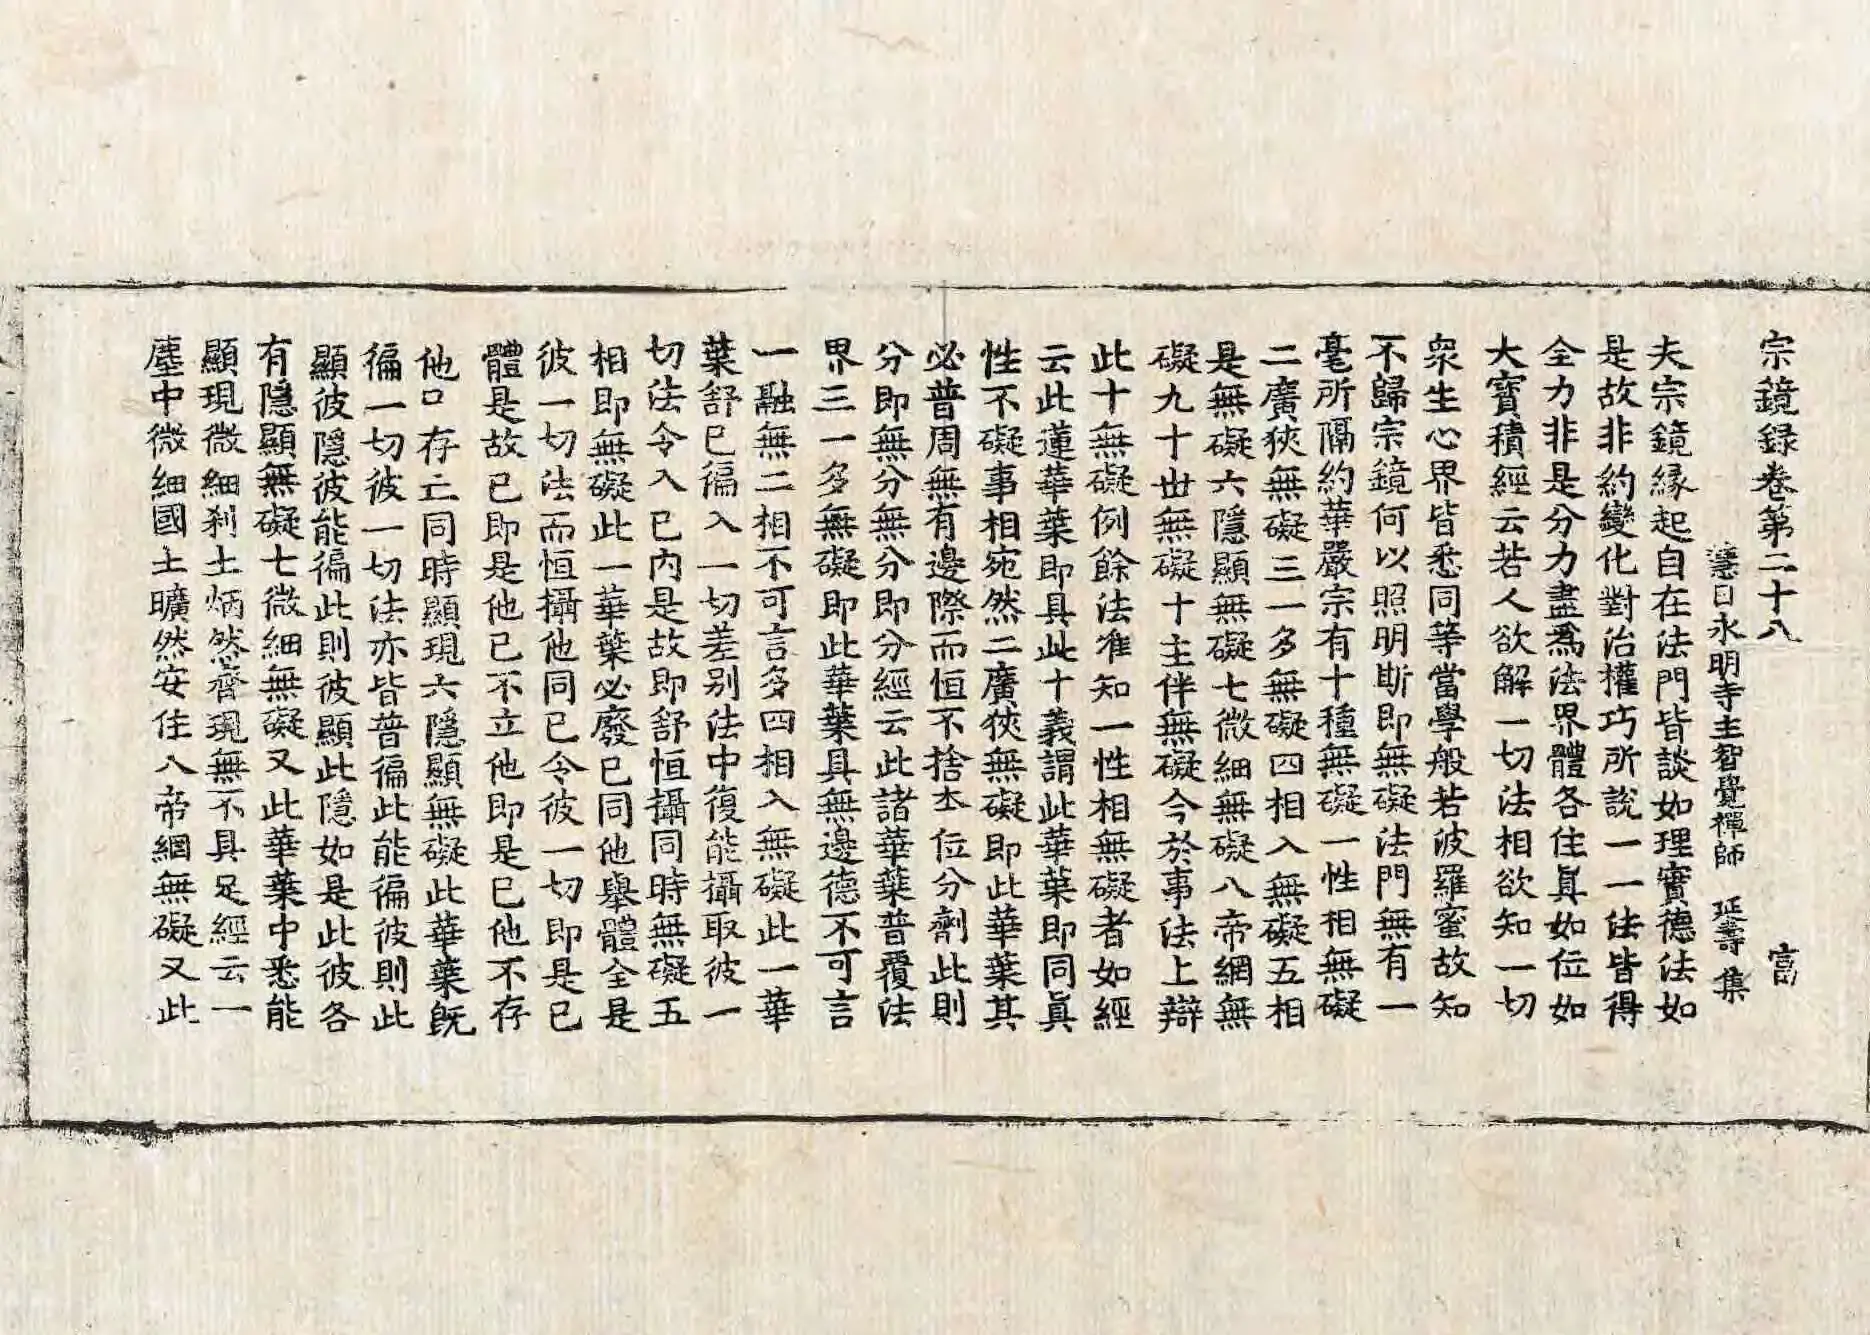 宗鏡錄卷第二十八 富
慧日永明寺主智覺禪師 延壽 集
夫宗鏡緣起自在法門皆談如理實德法如
是故非約變化對治權巧所說一一法皆得
全力非是分力盡爲法界體各住眞如位如
大寶積經云若人欲解一切法相欲知一切
衆生心界皆悉同等當學般若波羅蜜故知
不歸宗鏡何以照明斯即無礙法門無有一
毫所隔約華嚴宗有十種無礙一性相無礙
二廣狹無礙三一多無礙四相入無礙五相
是無礙六隱顯無礙七微細無礙八帝網無
礙九十世無礙十主伴無礙今於事法上辯
此十無礙例餘法准知一性相無礙者如經
云此蓮華葉即具此十義謂此華葉即同眞
性不礙事相宛然二廣狹無礙即此華葉其
必普周無有邊際而恒不捨本位分劑此則
分即無分無分即分經云此諸華葉普覆法
界三一多無礙即此華葉具無邊德不可言
一融無二相不可言多四相入無礙此一華
葉舒已徧入一切差别法中復能攝取彼一
切法令入已內是故即舒恒攝同時無礙五
相即無礙此一華葉必廢已同他舉體全是
彼一切法而恒攝他同已令彼一切即是已
體是故已即是他已不立他即是已他不存
他口存亡同時顯現六隱顯無礙此華葉旣
徧一切彼一切法亦皆普徧此能徧彼則此
顯彼隱彼能徧此則彼顯此隱如是此彼各
有隱顯無礙七微細無礙又此華葉中悉能
顯現微細刹土炳然齊現無不具足經云一
塵中微細國土曠然安住八帝網無礙又此